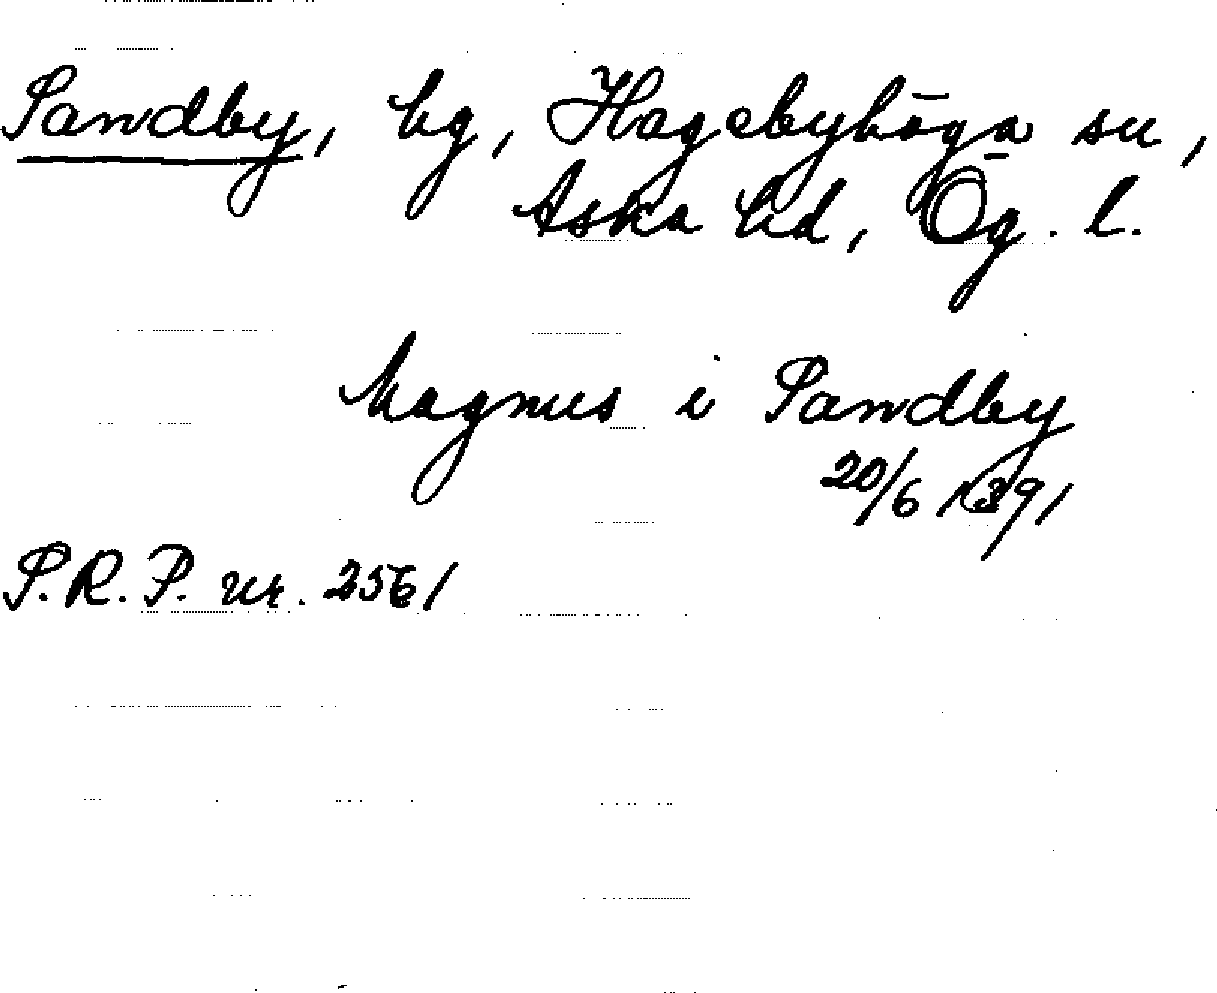 Sandby, hg, Hagebyhöga sn,
Aska hd, Ög. l.
Magnus i Sandby
20/6 1391
S.R.P. nr. 2561